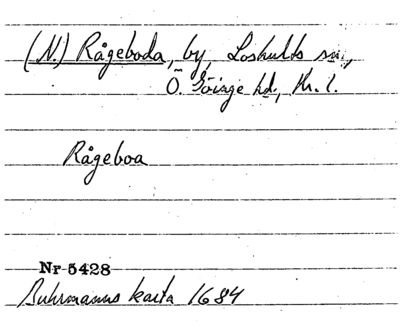 (N.) Rågeboda, by, Loshults sn.,
Ö. Göinge hd., Kr. l.
Rågeboa
Nr 5428
Buhrmanns karta 1684